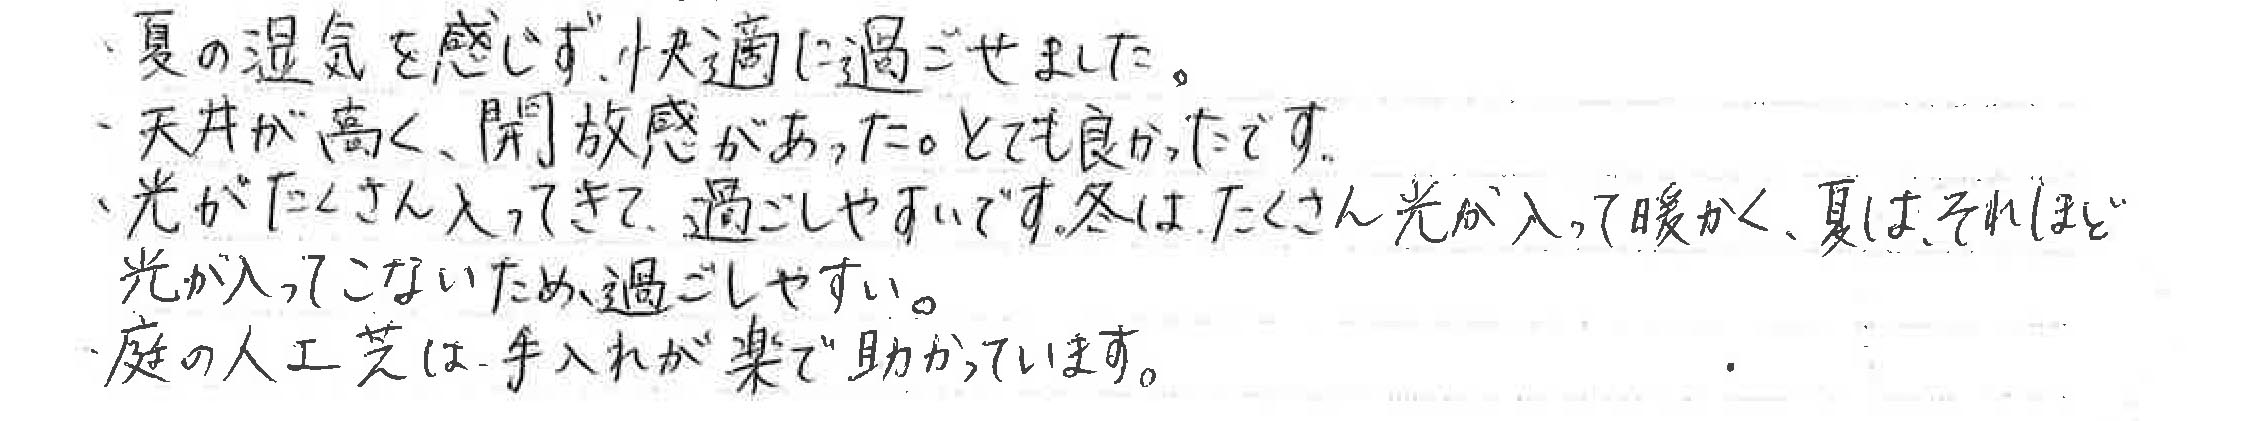 ・夏の湿気を感じず、快適に過ごせました。
・天井が高く、開放感があった。とても良かったです。
・光がたくさん入ってきて、過ごしやすいです。冬は、たくさん光が入って暖かく、夏は、それほど
光が入ってこないため、過ごしやすい。
・庭の人工芝は、手入れが楽で助かっています。